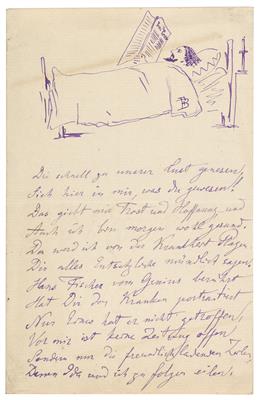 Die schnell zu unserer Lust genesen,
Sieh hier in mir, was Du gewesen!
Das giebt mir Trost und Hoffnung und
Auch ich bin morgen wohl gesund.
Da werd ich von des Krankheit Plagen
Dir alles mündlich sagen.
Hans Fischer vom Genius berührt
Hat Dir den Kranken porträtiert
Nur Eines hat er nicht getroffen,
Vor mir ist keine Zeitung offen
Sondern nur die freundlich ladenden Zeilen
Deren und ich zu folgen eilen.